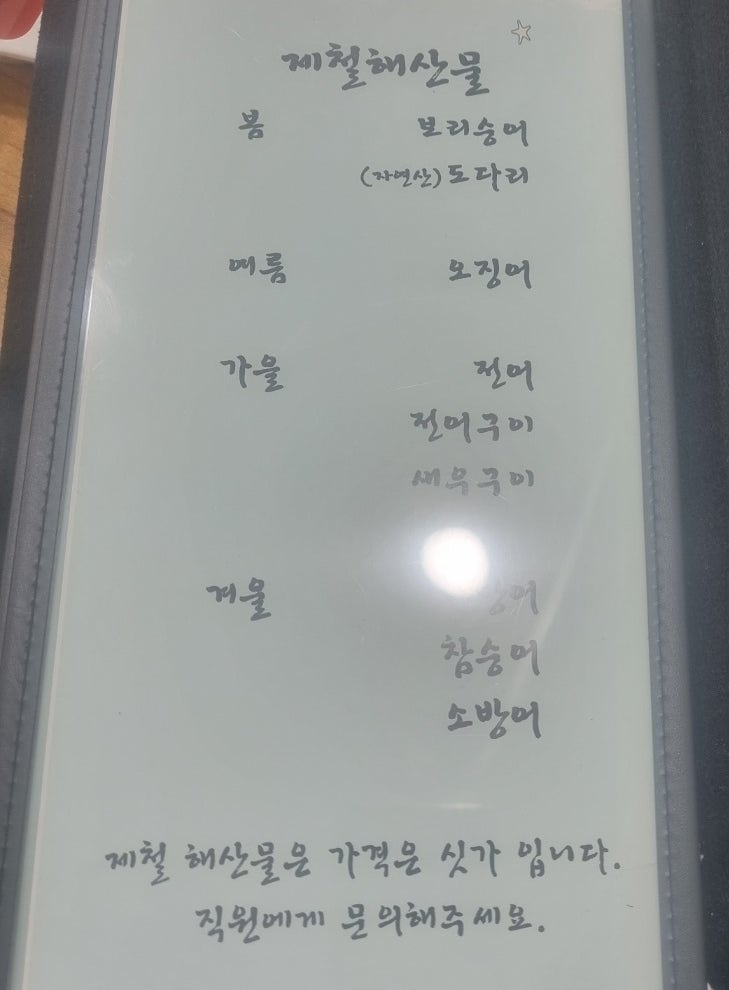 제철해산물
봄 보리숭어
(자연산) 도다리
여름 오징어
가을 전어
전어구이
새우구이
겨울
참숭어
소방어
제철 해산물은 가격은 싯가 입니다.
직원에게 문의해주세요.